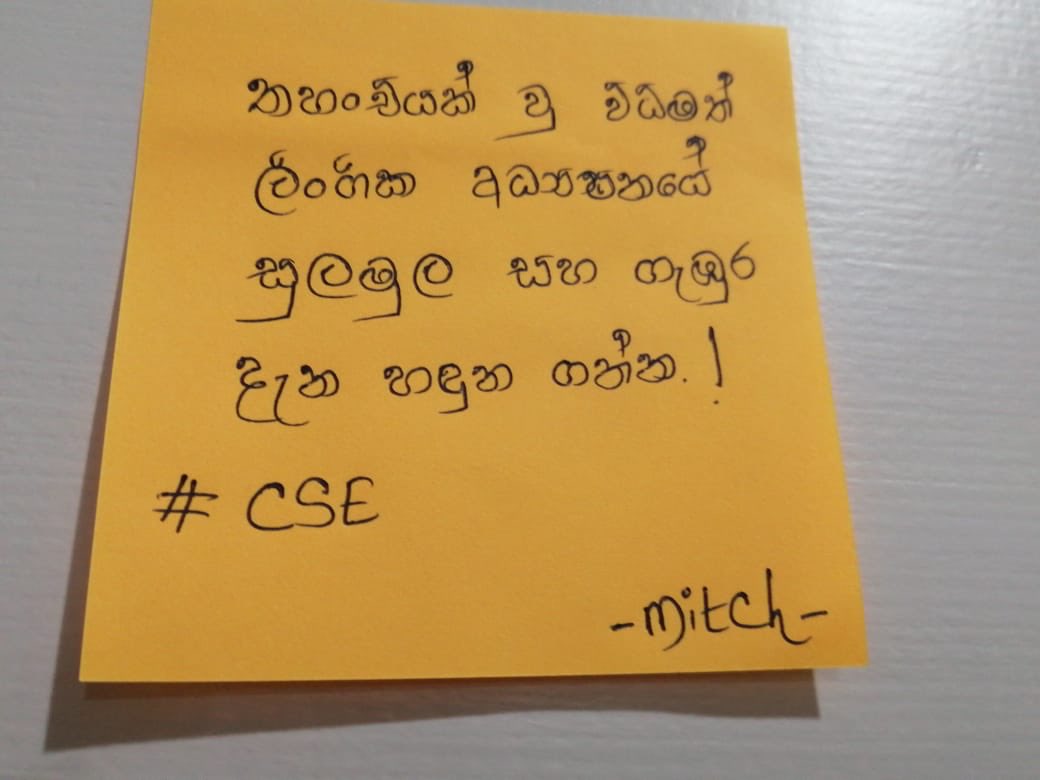 තහංචියක් වු විධිමත්
ලිංගික අධ්‍යනයේ
සුලමුල සහ ගැඹුර
දැන හඳුන ගන්න. !
# CSE
-mitch-